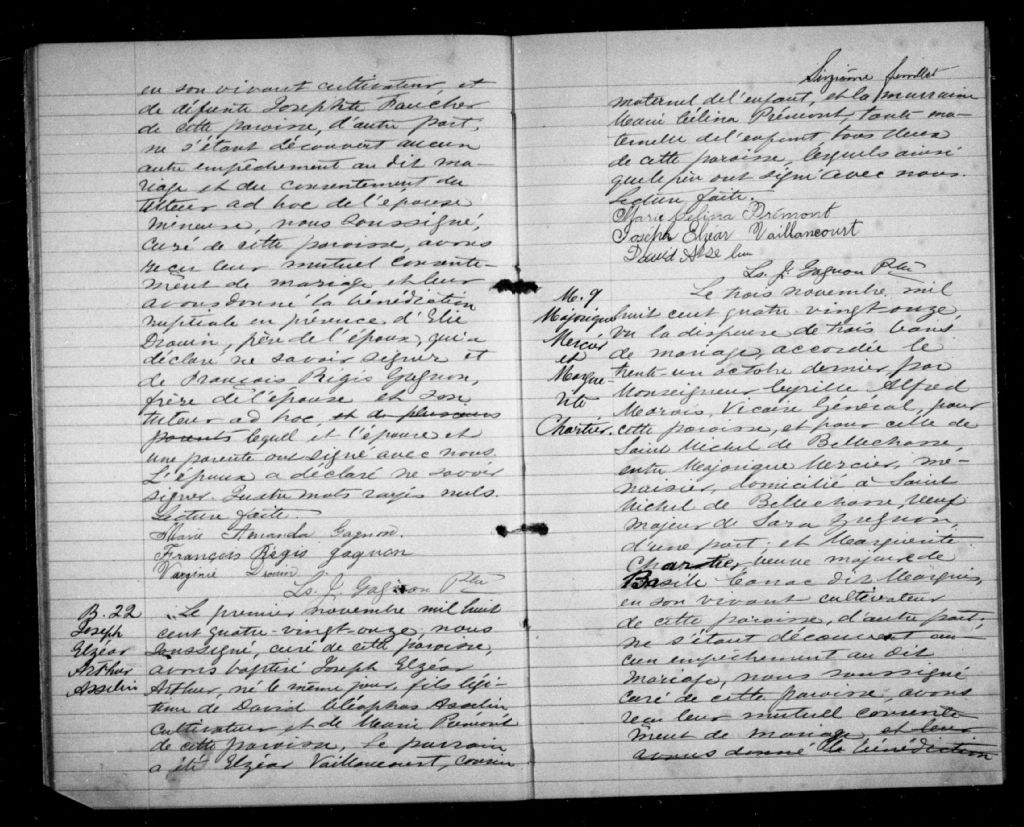 en son vivant cultivateur, et
de défunte Josephte Paucher
de cette paroisse, d'autre part,
ne s'étant découvert aucun
autre empêchement au dit ma-
riage et du consentement du
tuteur ad hoc de l'épouse
mineure, nous soussigné,
curé de cette paroisse, avons
reçu leur mutuel consente-
ment de mariage et leur
avons donné la bénédiction
nuptiale en présence d'Elie
Drouin, père de l'époux, qui a
déclaré ne savoir signer et
de François Régis Gagnon,
frère de l'épouse et son
tuteur ad hoc, et de plusieurs
parents lequel et l'épouse et
une parente ont signé avec nous.
L'époux a déclaré ne savoir
signer. Quatre mots rayés nuls.
Lecture faite.
Marie Amanda Gagnon.
François Régis Gagnon
Virginie Drouin
Ls. J. Gagnon Ptre
B. 22
Joseph
Elzéar
Arthur
Asselin
Le premier novembre mil huit
cent quatre-vingt-onze, nous
soussigné, curé de cette paroisse,
avons baptisé Joseph Elzéar
Arthur, né le même jour, fils légi-
time de David Cléophas Asselin
cultivateur et de Marie Prémont
de cette paroisse. Le parrain
a été Elzéar Vaillancourt, cousin
Sixième feuillet
maternel de l'enfant, et la marraine
Marie Célina Prémont, tante ma-
ternelle de l'enfant tous deux
de cette paroisse, lesquels ainsi
que le père ont signé avec nous.
Lecture faite.
Marie Célina Prémont
Joseph Elzéar Vaillancourt
David Asselin
Ls. J. Gagnon Ptre
M. 9
Majorique
Mercier
et
Margue-
rite
Chartier.
Le trois novembre mil
huit cent quatre vingt onze,
vu la dispense de trois bans
de mariage, accordée le
trente un octobre dernier par
Monseigneur Cyrille Alfred
Marois, Vicaire Général, pour
cette paroisse, et pour celle de
Saint Michel de Bellechasse
entre Majorique Mercier, me-
nuisier, domicilié à Saint
Michel de Bellechasse, veuf
majeur de Sara Gagnon,
d'une part; et Marguerite
Chartier, veuve majeure de
Basile Canac dit Marquis,
en son vivant cultivateur
de cette paroisse, d'autre part;
ne s'étant découvert au-
cun empêchement au dit
mariage, nous soussigné
curé de cette paroisse avons
reçu leur mutuel consente-
ment de mariage, et leur
avons donné la bénédiction